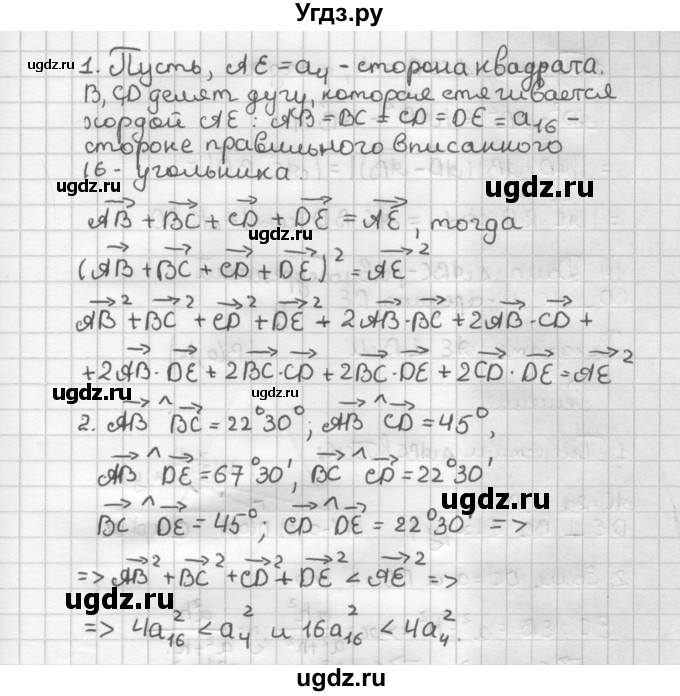 Угдз.ру
ugdz.ru
1. Пусть, AE = a₄ - сторона квадрата.
B, C, D делят дугу, которая стягивается
хордой AE : AB = BC = CD = DE = a₁₆ -
стороне правильного вписанного
16 - угольника
ugdz.ru
ugdz.ru
AB + BC + CD + DE = AE, тогда
ugdz.ru
(AB + BC + CD + DE)² = AE²
AB² + BC² + CD² + DE² + 2AB·BC + 2AB·CD +
+ 2AB·DE + 2BC·CD + 2BC·DE + 2CD·DE = AE²
ugdz.ru
ugdz.ru
2. AB ^ BC = 22°30'; AB ^ CD = 45°,
AB ^ DE = 67°30', BC ^ CD = 22°30'
ugdz.ru
BC ^ DE = 45°; CD ^ DE = 22°30' =>
=> AB² + BC² + CD² + DE² < AE² =>
ugdz.ru
=> 4a₁₆² < a₄² и 16a₁₆² < 4a₄².
ugdz.ru
ugdz.ru